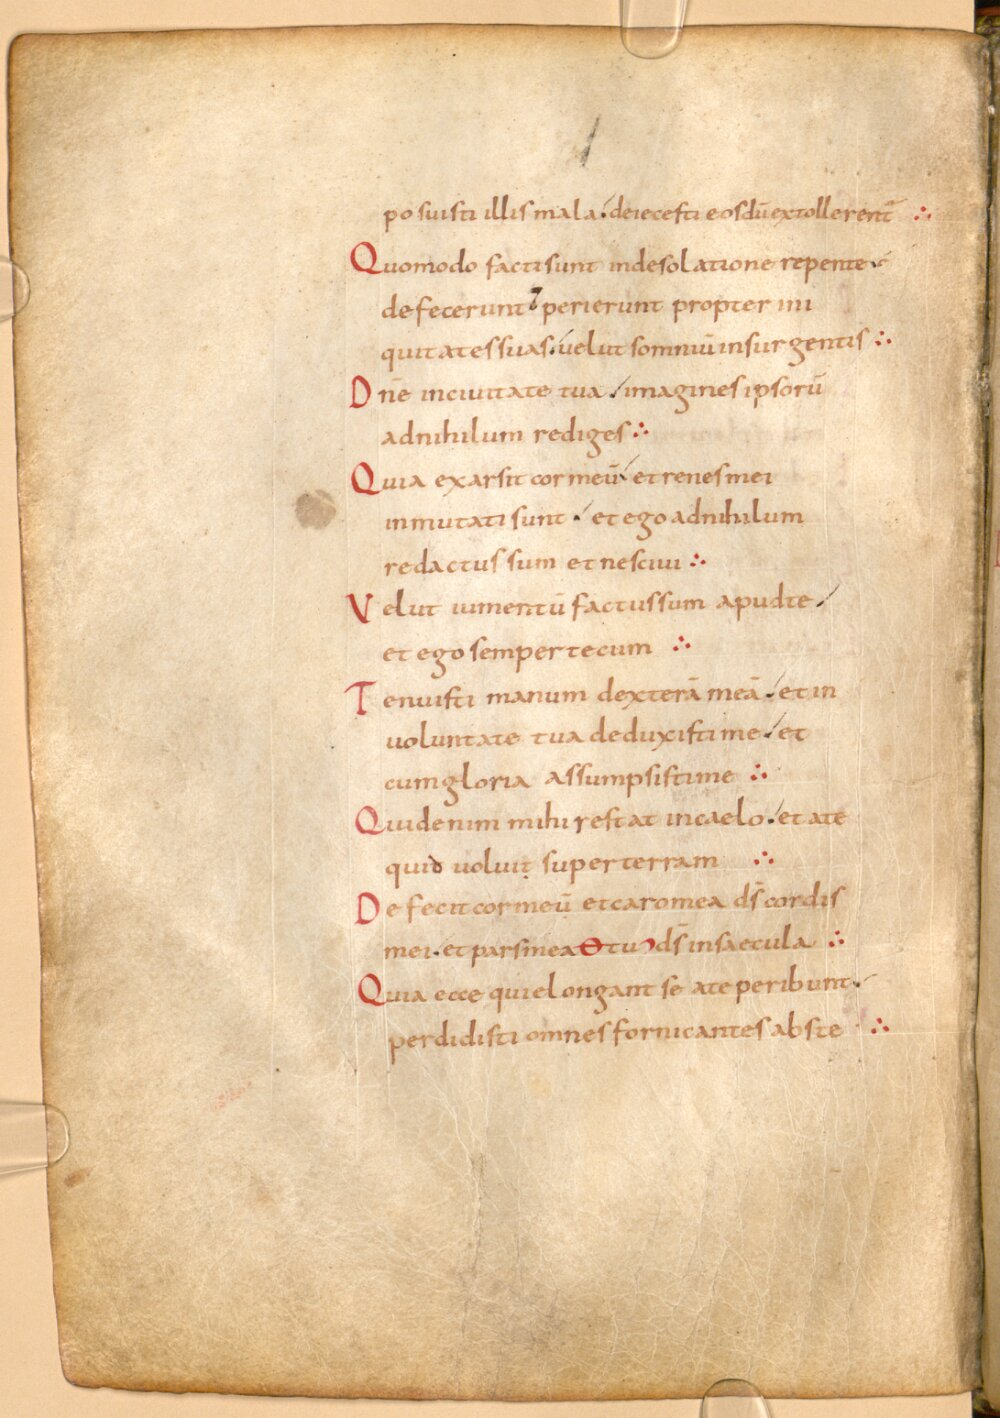 posuisti illis mala. deiecesti eos dū extollerent̄ ∴
Quomodo facti sunt in desolatione repente.
defecerunt ⁊ perierunt propter ini
quitates suas. velut somniū insurgentis ∴
Dn̄e in civitate tua. imagines ipsorū
ad nihilum rediges ∴
Quia exarsit cor meū. et renes mei
inmutati sunt. et ego ad nihilum
redactus sum et nescivi ∴
Velut iumentū factus sum apud te
et ego semper tecum ∴
Tenuisti manum dexterā meā. et in
voluntate tua deduxisti me. et
cum gloria assumpsisti me ∴
Quid enim mihi restat in caelo. et a te
quid voluit super terram ∴
Defecit cor meū et caro mea ds̄ cordis
mei. et pars mea ds̄ in saecula ∴
Quia ecce qui elongant se a te peribunt.
perdidisti omnes fornicantes abs te ∴